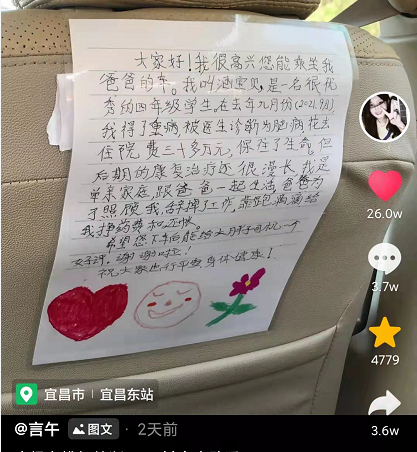 大家好！我很高兴您能乘坐我
爸爸的车。我叫涵宝贝，是一名很优
秀的四年级学生在去年九月份(2021.9月)
我得了重病被医生诊断为脑病花去
住院费三十多万元，保住了生命。但
后期的康复治疗还很漫长，我是
单亲家庭跟爸爸一起生活，爸爸为
了照顾我，辞掉工作，靠跑滴滴给
我挣药费和
希望您下车后能给大好司机一个
好评，谢谢啦！
祝大家出行平安身体健康！
26.0w
3.7w
4779
3.6w
宜昌市 | 宜昌东站
@言午 图文 · 2天前